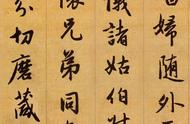 唱婦随外
儀諸姑伯叔
懷兄弟同
分切磨箴